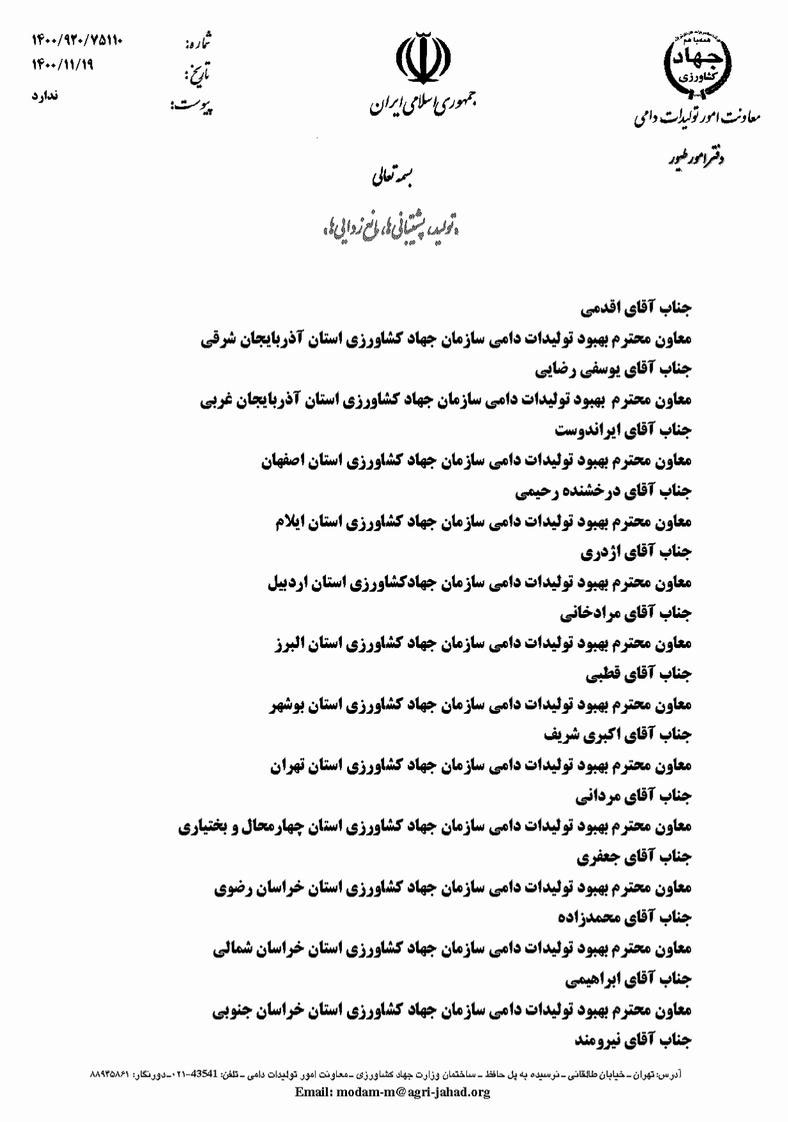 شماره: ۱۴۰۰/۹۲۰/۷۵۱۱۰
تاریخ: ۱۴۰۰/۱۱/۱۹
پیوست: ندارد
جمهوری اسلامی ایران
همه با هم
جهاد
کشاورزی
معاونت امور تولیدات دامی
دفتر امور طیور
بسمه تعالی
«تولید، پشتیبانی‌ها، مانع زدایی‌ها»
جناب آقای اقدمی
معاون محترم بهبود تولیدات دامی سازمان جهاد کشاورزی استان آذربایجان شرقی
جناب آقای یوسفی رضایی
معاون محترم بهبود تولیدات دامی سازمان جهاد کشاورزی استان آذربایجان غربی
جناب آقای ایراندوست
معاون محترم بهبود تولیدات دامی سازمان جهاد کشاورزی استان اصفهان
جناب آقای درخشنده رحیمی
معاون محترم بهبود تولیدات دامی سازمان جهاد کشاورزی استان ایلام
جناب آقای اژدری
معاون محترم بهبود تولیدات دامی سازمان جهادکشاورزی استان اردبیل
جناب آقای مرادخانی
معاون محترم بهبود تولیدات دامی سازمان جهاد کشاورزی استان البرز
جناب آقای قطبی
معاون محترم بهبود تولیدات دامی سازمان جهاد کشاورزی استان بوشهر
جناب آقای اکبری شریف
معاون محترم بهبود تولیدات دامی سازمان جهاد کشاورزی استان تهران
جناب آقای مردانی
معاون محترم بهبود تولیدات دامی سازمان جهاد کشاورزی استان چهارمحال و بختیاری
جناب آقای جعفری
معاون محترم بهبود تولیدات دامی سازمان جهاد کشاورزی استان خراسان رضوی
جناب آقای محمدزاده
معاون محترم بهبود تولیدات دامی سازمان جهاد کشاورزی استان خراسان شمالی
جناب آقای ابراهیمی
معاون محترم بهبود تولیدات دامی سازمان جهاد کشاورزی استان خراسان جنوبی
جناب آقای نیرومند
آدرس: تهران ـ خیابان طالقانی ـ نرسیده به پل حافظ ـ ساختمان وزارت جهاد کشاورزی ـ معاونت امور تولیدات دامی ـ تلفن: 43541-۰۲۱ـ دورنگار: ۸۸۹۳۵۸۶۱
Email: modam-m@agri-jahad.org